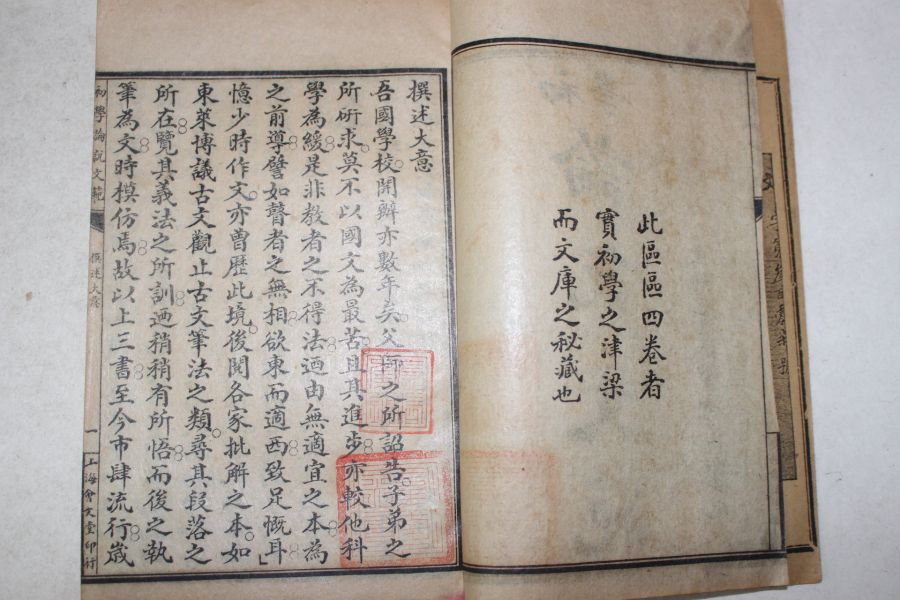 此區區四卷者
實初學之津梁
而文庫之秘藏也
撰述大意
吾國學校。開辦亦數年矣。父師之所詔告。子弟之
所研求。莫不以國文為最苦。且其進步。亦較他科
學為緩。是非教者之不得法。迺由無適宜之本。為
之前導。譬如瞽者之無相。欲東而適西。致足慨耳」
憶少時作文。亦曾歷此境。後閱各家批解之本。如
東萊博議古文觀止古文筆法之類。尋其段落之
所在。覽其義法之所訓。迺稍稍有所悟。而後之執
筆為文。時模仿焉。故以上三書。至今市肆流行。歲
初學論說文範
撰述大意
一
上海會文堂印行